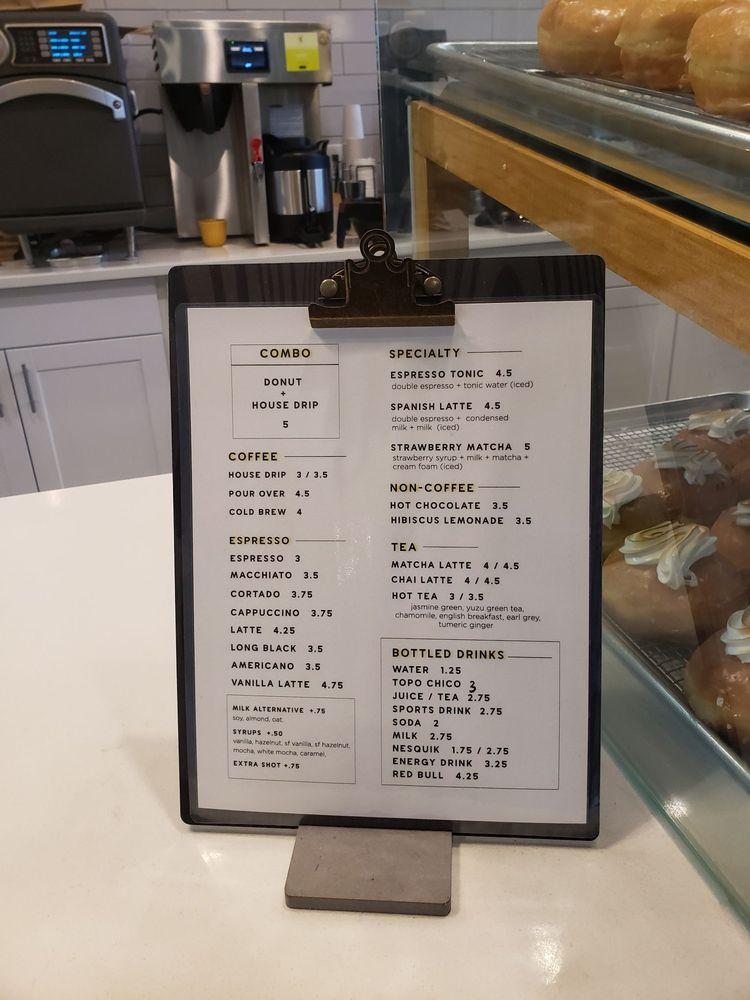 COMBO
DONUT
+
HOUSE DRIP
5
COFFEE
HOUSE DRIP 3 / 3.5
POUR OVER 4.5
COLD BREW 4
ESPRESSO
ESPRESSO 3
MACCHIATO 3.5
CORTADO 3.75
CAPPUCCINO 3.75
LATTE 4.25
LONG BLACK 3.5
AMERICANO 3.5
VANILLA LATTE 4.75
MILK ALTERNATIVE +.75
soy, almond, oat.
SYRUPS +.50
vanilla, hazelnut, sf vanilla, sf hazelnut,
mocha, white mocha, caramel,
EXTRA SHOT +.75
SPECIALTY
ESPRESSO TONIC 4.5
double espresso + tonic water (iced)
SPANISH LATTE 4.5
double espresso + condensed
milk + milk (iced)
STRAWBERRY MATCHA 5
strawberry syrup + milk + matcha +
cream foam (iced)
NON-COFFEE
HOT CHOCOLATE 3.5
HIBISCUS LEMONADE 3.5
TEA
MATCHA LATTE 4 / 4.5
CHAI LATTE 4 / 4.5
HOT TEA 3 / 3.5
jasmine green, yuzu green tea,
chamomile, english breakfast, earl grey,
tumeric ginger
BOTTLED DRINKS
WATER 1.25
TOPO CHICO 3
JUICE / TEA 2.75
SPORTS DRINK 2.75
SODA 2
MILK 2.75
NESQUIK 1.75 / 2.75
ENERGY DRINK 3.25
RED BULL 4.25